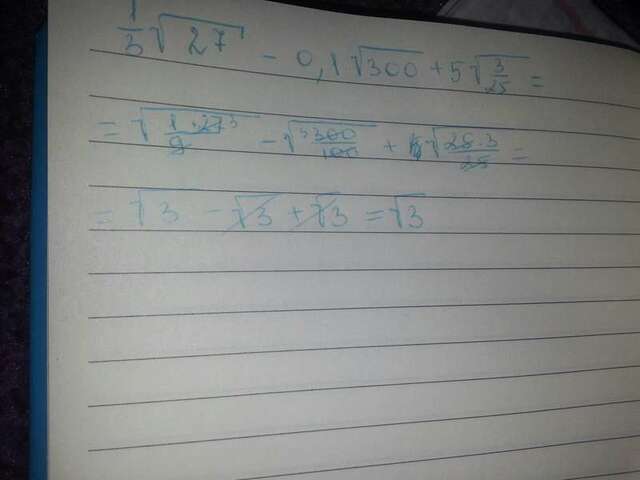 1/3 √27 - 0,1√300 + 5√3/25 =
= √1·27³/9 - √³300/100 + √25·3/25 =
= √3 - √3 + √3 = √3